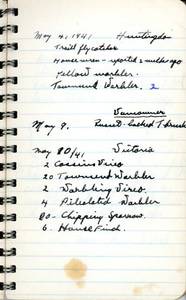 May 4, 1941 Huntingdon
Traill flycatcher
House wren - reported 2 weeks ago
Yellow warbler.
Townsend Warbler. 2
Vancouver
May 9. Russet-backed Thrush
May 10/41 Victoria
2 Cassins Vireo
20 Townsend Warbler
2 Warbling Vireo.
4 Pileolated Warbler
80- Chipping Sparrow.
6. House Finch.